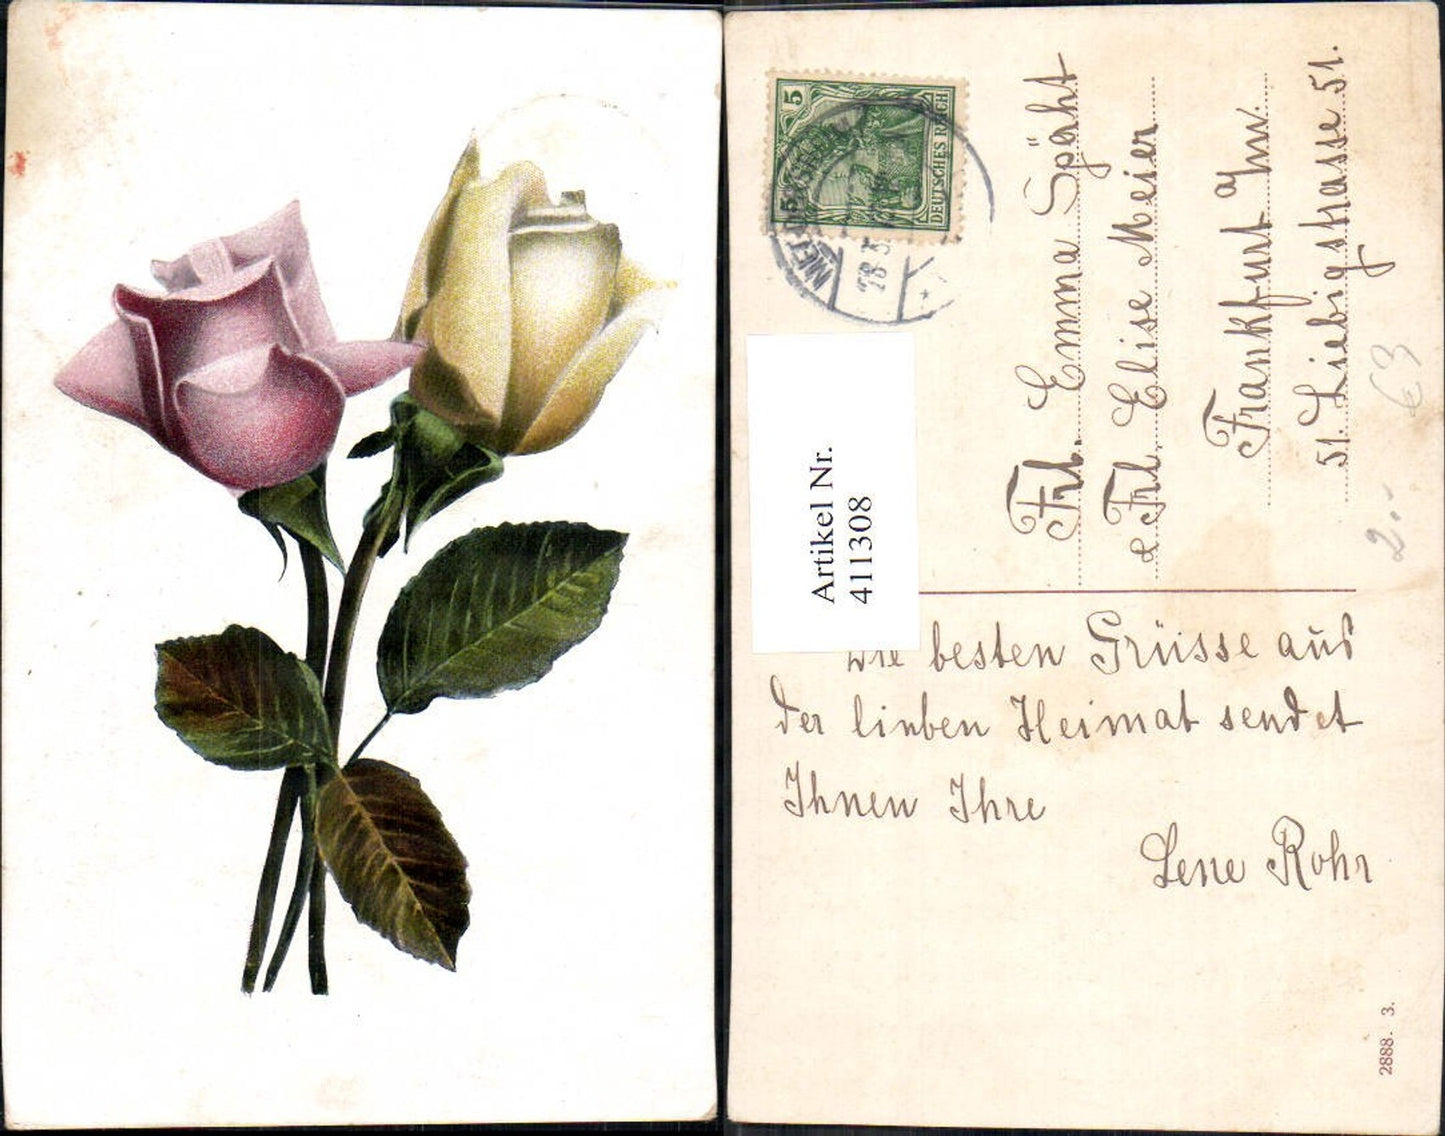 5
5
DEUTSCHES REICH
Frl. Emma Späht
& Frl. Elise Meier
Frankfurt a/M.
51. Liebigstrasse 51.
Artikel Nr.
411308
€3
2.-
Die besten Grüsse aus
der lieben Heimat sendet
Ihnen Ihre
Lene Rohr
2888. 3.